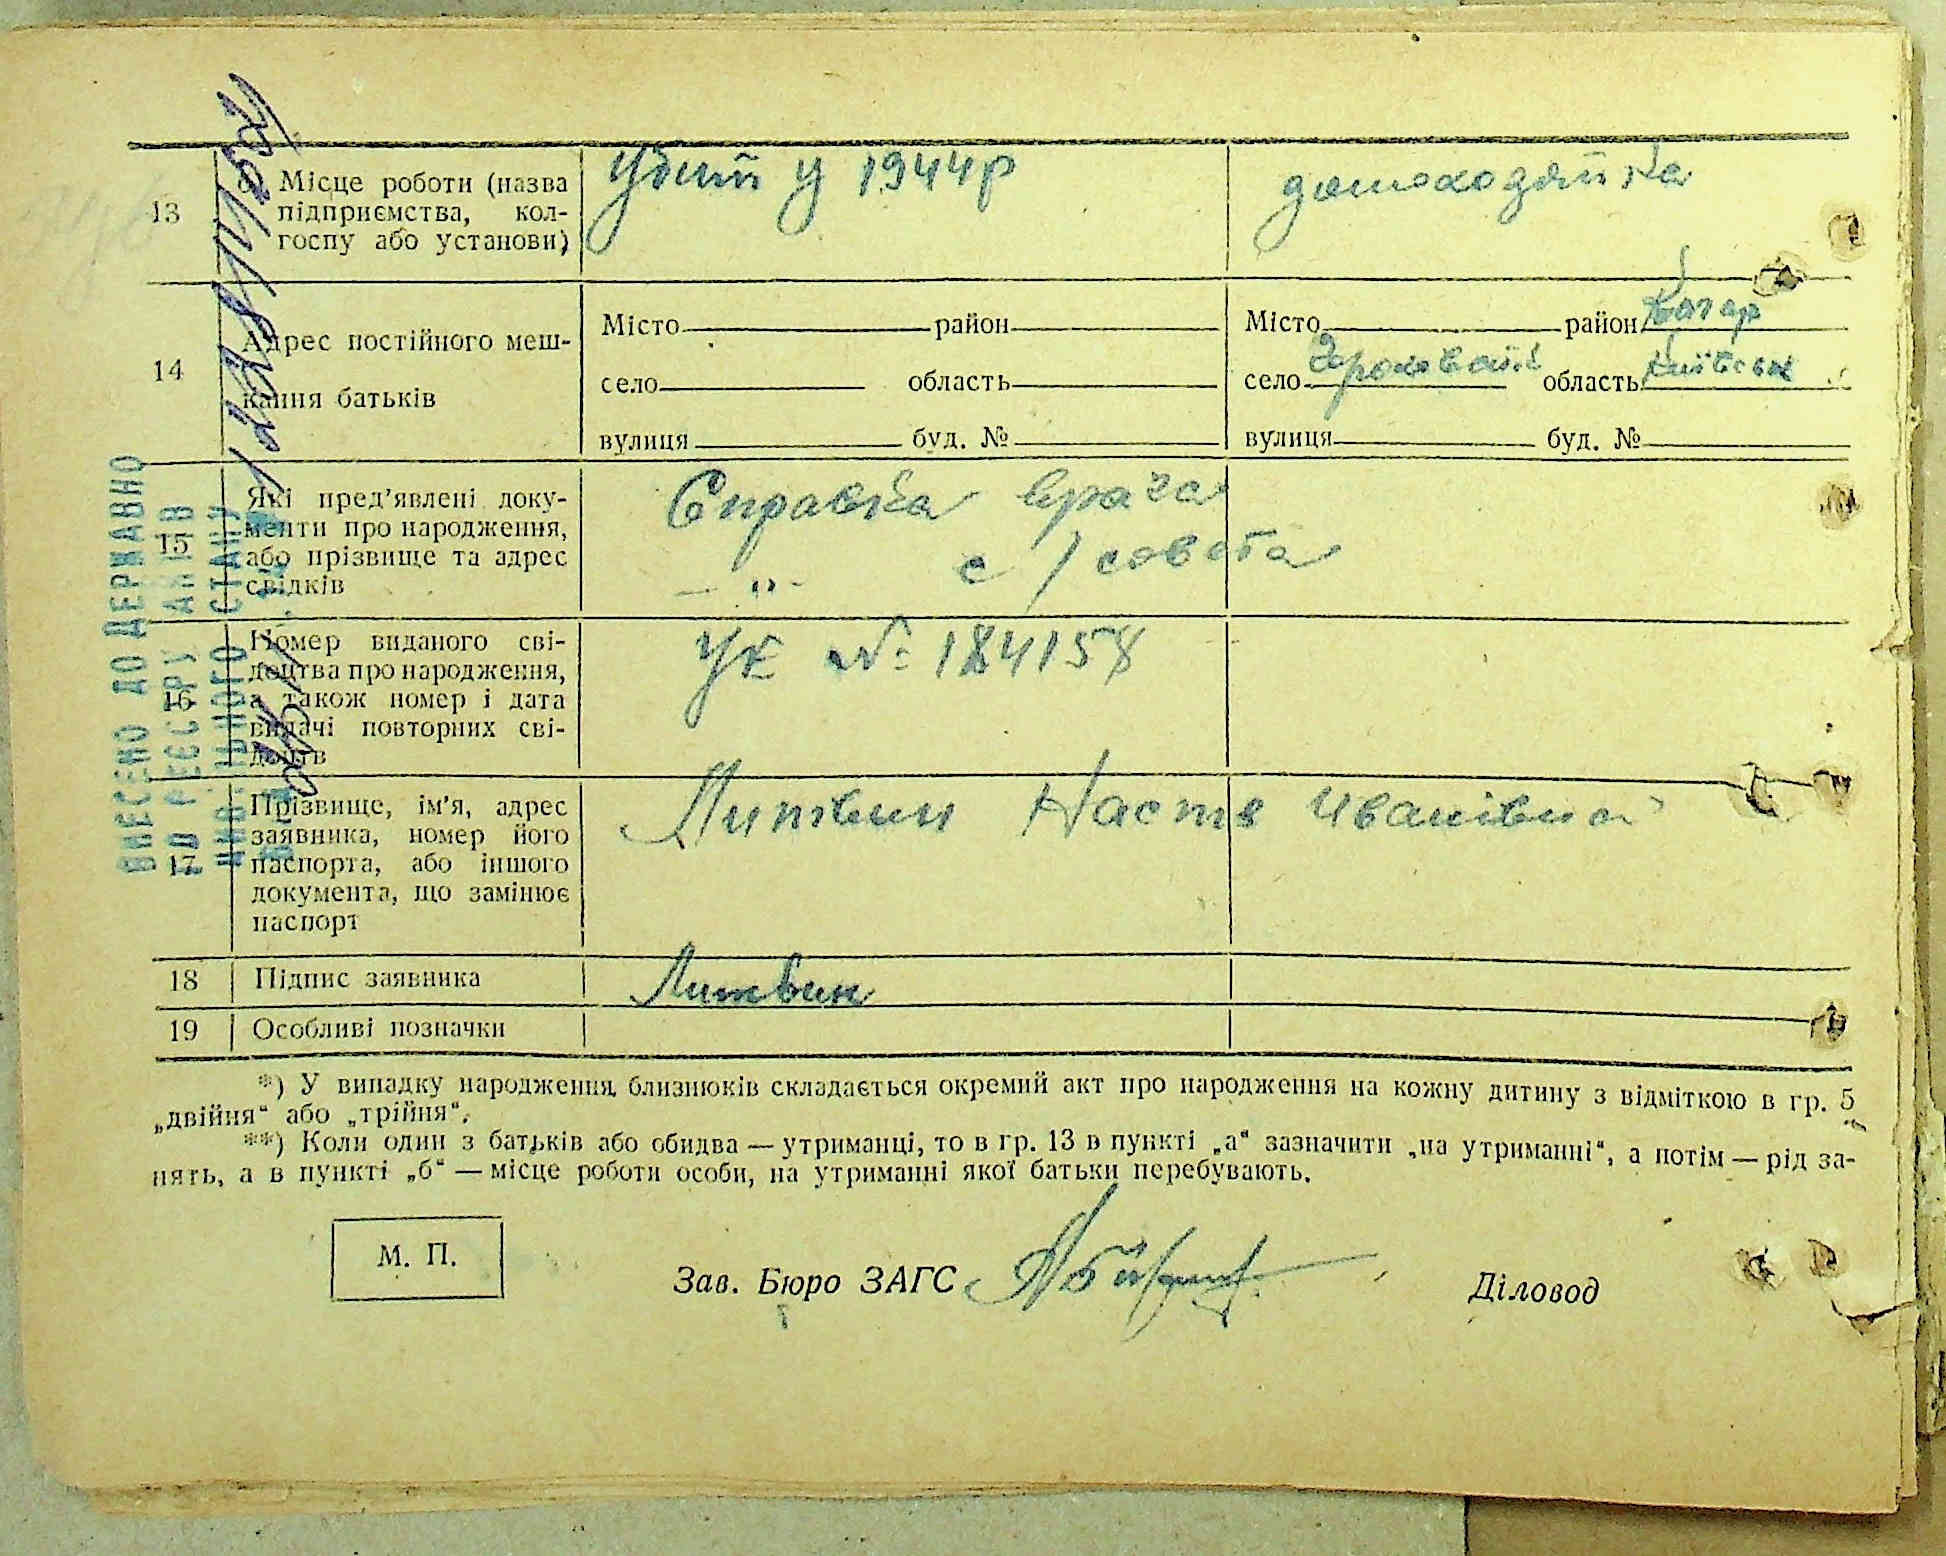 13
Місце роботи (назва
підприємства, кол-
госпу або установи)
Убит у 1944р
домохозяйка
14
Адрес постійного меш-
кання батьків
Місто район
село область
вулиця буд. №
Місто район Кагар
село область Київськ
вулиця буд. №
15
Які пред’явлені доку-
менти про народження,
або прізвище та адрес
свідків
Справка врача
— „ — с/совета
16
Номер виданого сві-
доцтва про народження,
а також номер і дата
видачі повторних сві-
доцтв
УК №: 184158
17
Прізвище, ім’я, адрес
заявника, номер його
паспорта, або іншого
документа, що замінює
паспорт
Литвин Настя Иванівна
18
Підпис заявника
Литвин
19
Особливі позначки
ВНЕСЕНО ДО ДЕРЖАВНО
ГО РЕЄСТРУ АКТІВ
ЦИВІЛЬНОГО СТАНУ
*) У випадку народження близнюків складається окремий акт про народження на кожну дитину з відміткою в гр. 5
„двійня“ або „трійня“.
**) Коли один з батьків або обидва — утриманці, то в гр. 13 в пункті „а“ зазначити „на утриманні“, а потім — рід за-
нять, а в пункті „б“ — місце роботи особи, на утриманні якої батьки перебувають.
М. П.
Зав. Бюро ЗАГС
Діловод